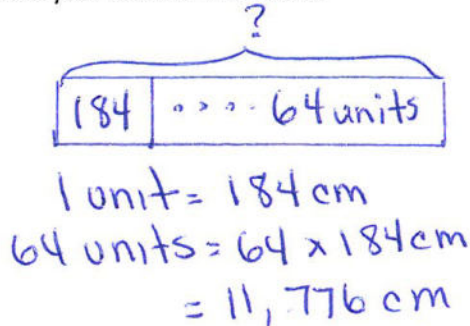 ?
184 .... 64 units
1 unit = 184 cm
64 units = 64 x 184 cm
= 11,776 cm